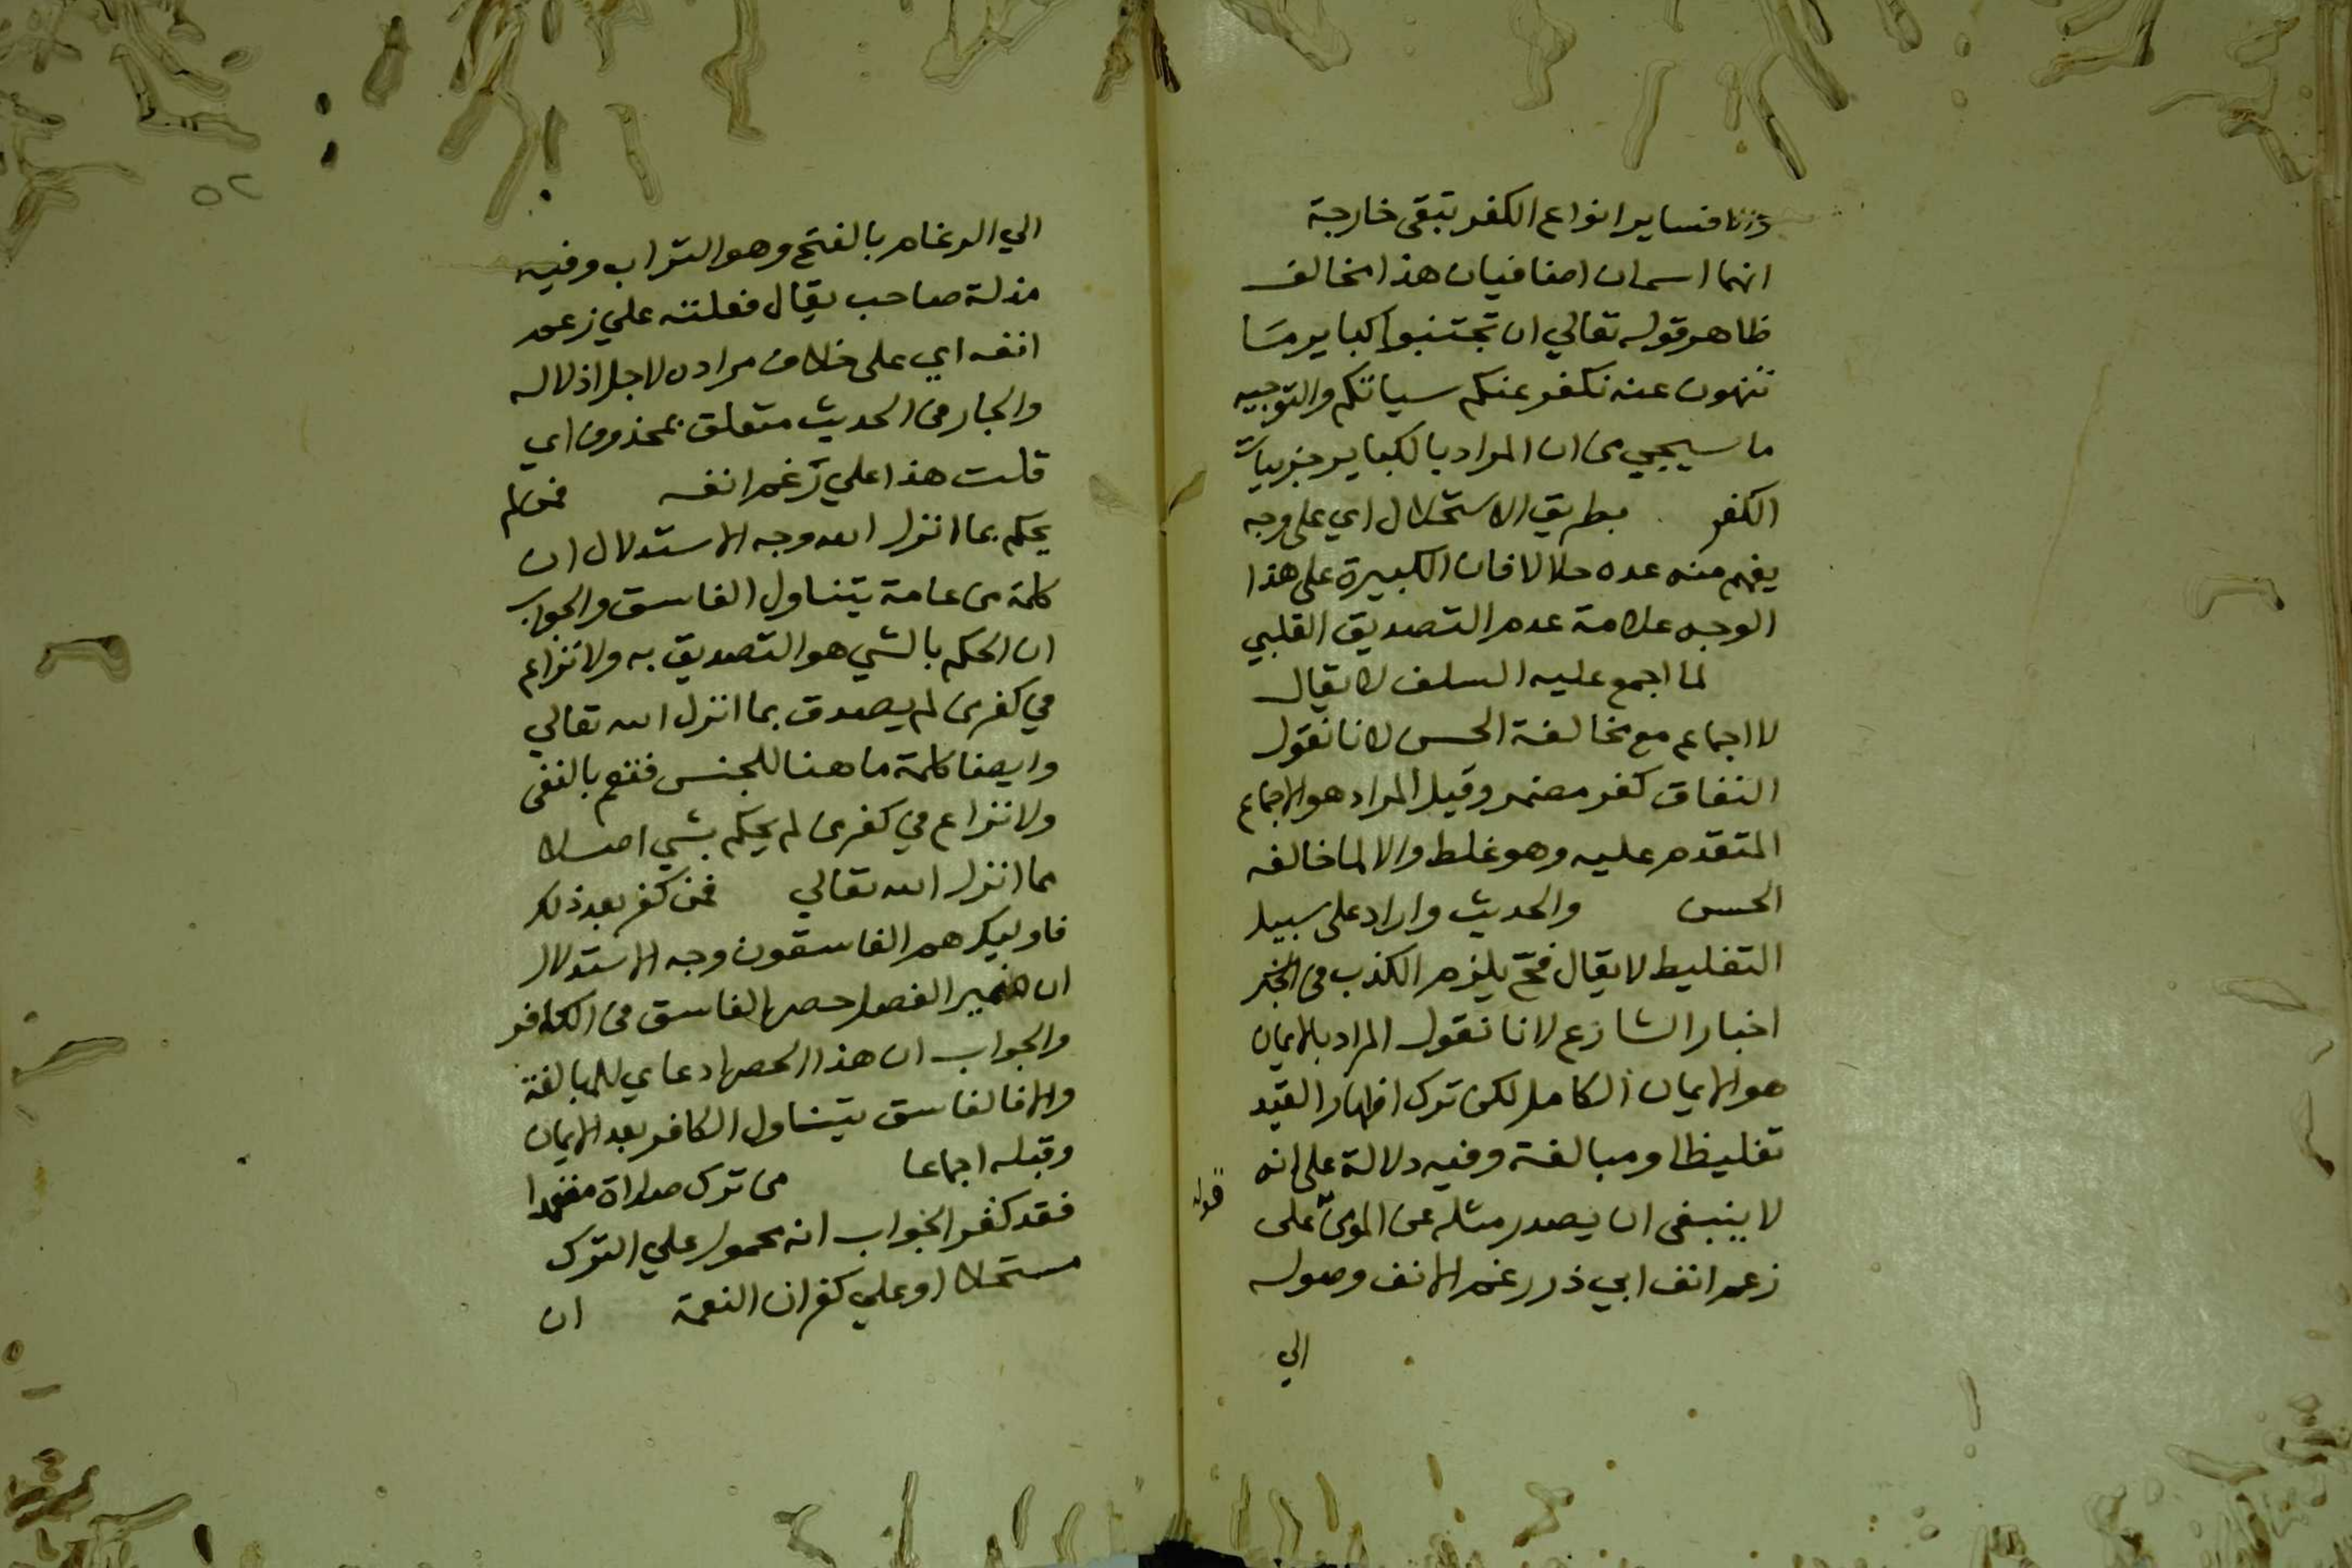 فسائر انواع الكفر تبقى خارجة
انهما اسمان اضافيان هذا مخالف
ظاهر قوله تعالي ان تجتنبوا كباير مَا
تنهون عنه نكفر عنكم سياتكم والتوجيه
ما سيجي من ان المراد بالكباير جزييات
الكفر بطريق الاستحلال اي على وجه
يفهم منه عده حلالا فان الكبيرة على هذا
الوجه علامة عدم التصديق القلبي
لما اجمع عليه السلف لا يقال
لا اجماع مع مخالفة الحسن لانا نقول
النفاق كفر مضمر وقيل المراد هو الاجماع
المتقدم عليه وهو غلط والا لما خالفه
الحسن والحديث وارد على سبيل
التغليظ لا يقال فح يلزم الكذب في
اخبار الشارع لانا نقول المراد بالايمان
هو الايمان الكامل لكن ترك اظهار القيد
تغليظا ومبالغة وفيه دلالة على انه
لا ينبغى ان يصدر مثله عن المومن على
قوله
رغم انف ابي ذر رغم الانف وصوله
الي
٥٢
الي الرغام بالفتح وهو التراب وفيه
مذلة صاحب يقال فعلته علي رغم
انفه اي على خلاف مراده لاجل اذلاله
والجار في الحديث متعلق بمحذوف اي
قلت هذا علي رَغم انفه فمن لم
يحكم بما انزل الله وجه الاستدلال ان
كلمة من عامة يتناول الفاسق والجواب
ان الحكم بالشي هو التصديق به ولا نزاع
في كفر من لم يصدق بما انزل الله تعالي
وايضا كلمة ما هنا للجنس فتعم بالنفى
ولا نزاع في كفر من لم يحكم بشي اصلا
مما انزل الله تعالي فمن كفر بعد ذلك
فاوليك هم الفاسقون وجه الاستدلال
ان ضمير الفصل حصر الفاسق في الكافر
والجواب ان هذا الحصر ادعاي للمبالغة
والا فالفاسق يتناول الكافر بعد الايمان
وقبله اجماعا من ترك صلاة متعمدا
فقد كفر الجواب انه محمول علي الترك
مستحلا او علي كفران النعمة ان